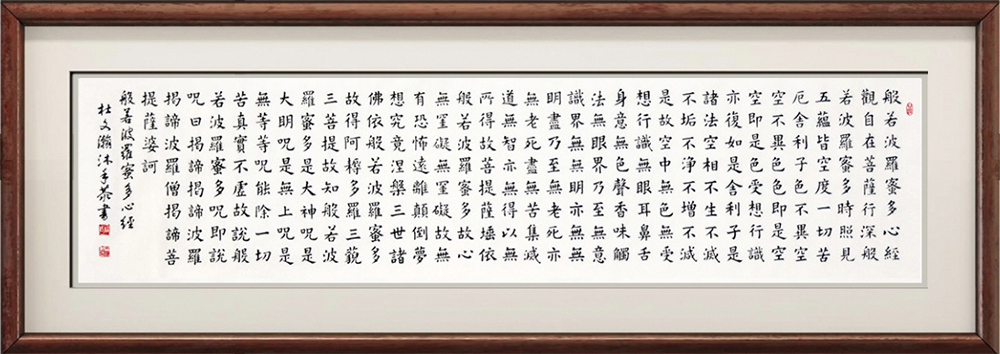 般若波羅蜜多心經
觀自在菩薩行深般
若波羅蜜多時照見
五蘊皆空度一切苦
厄舍利子色不異空
空不異色色即是空
空即是色受想行識
亦復如是舍利子是
諸法空相不生不滅
不垢不淨不增不減
是故空中無色無受
想行識無眼耳鼻舌
身意無色聲香味觸
法無眼界乃至無意
識界無無明亦無無
明盡乃至無老死亦
無老死盡無苦集滅
道無智亦無得以無
所得故菩提薩埵依
般若波羅蜜多故心
無罣礙無罣礙故無
有恐怖遠離顛倒夢
想究竟涅槃三世諸
佛依般若波羅蜜多
故得阿耨多羅三藐
三菩提故知般若波
羅蜜多是大神呪是
大明呪是無上呪是
無等等呪能除一切
苦真實不虛故說般
若波羅蜜多呪即說
呪曰揭諦揭諦波羅
揭諦波羅僧揭諦菩
提薩婆訶
般若波羅蜜多心經
杜文瀚沐手恭書